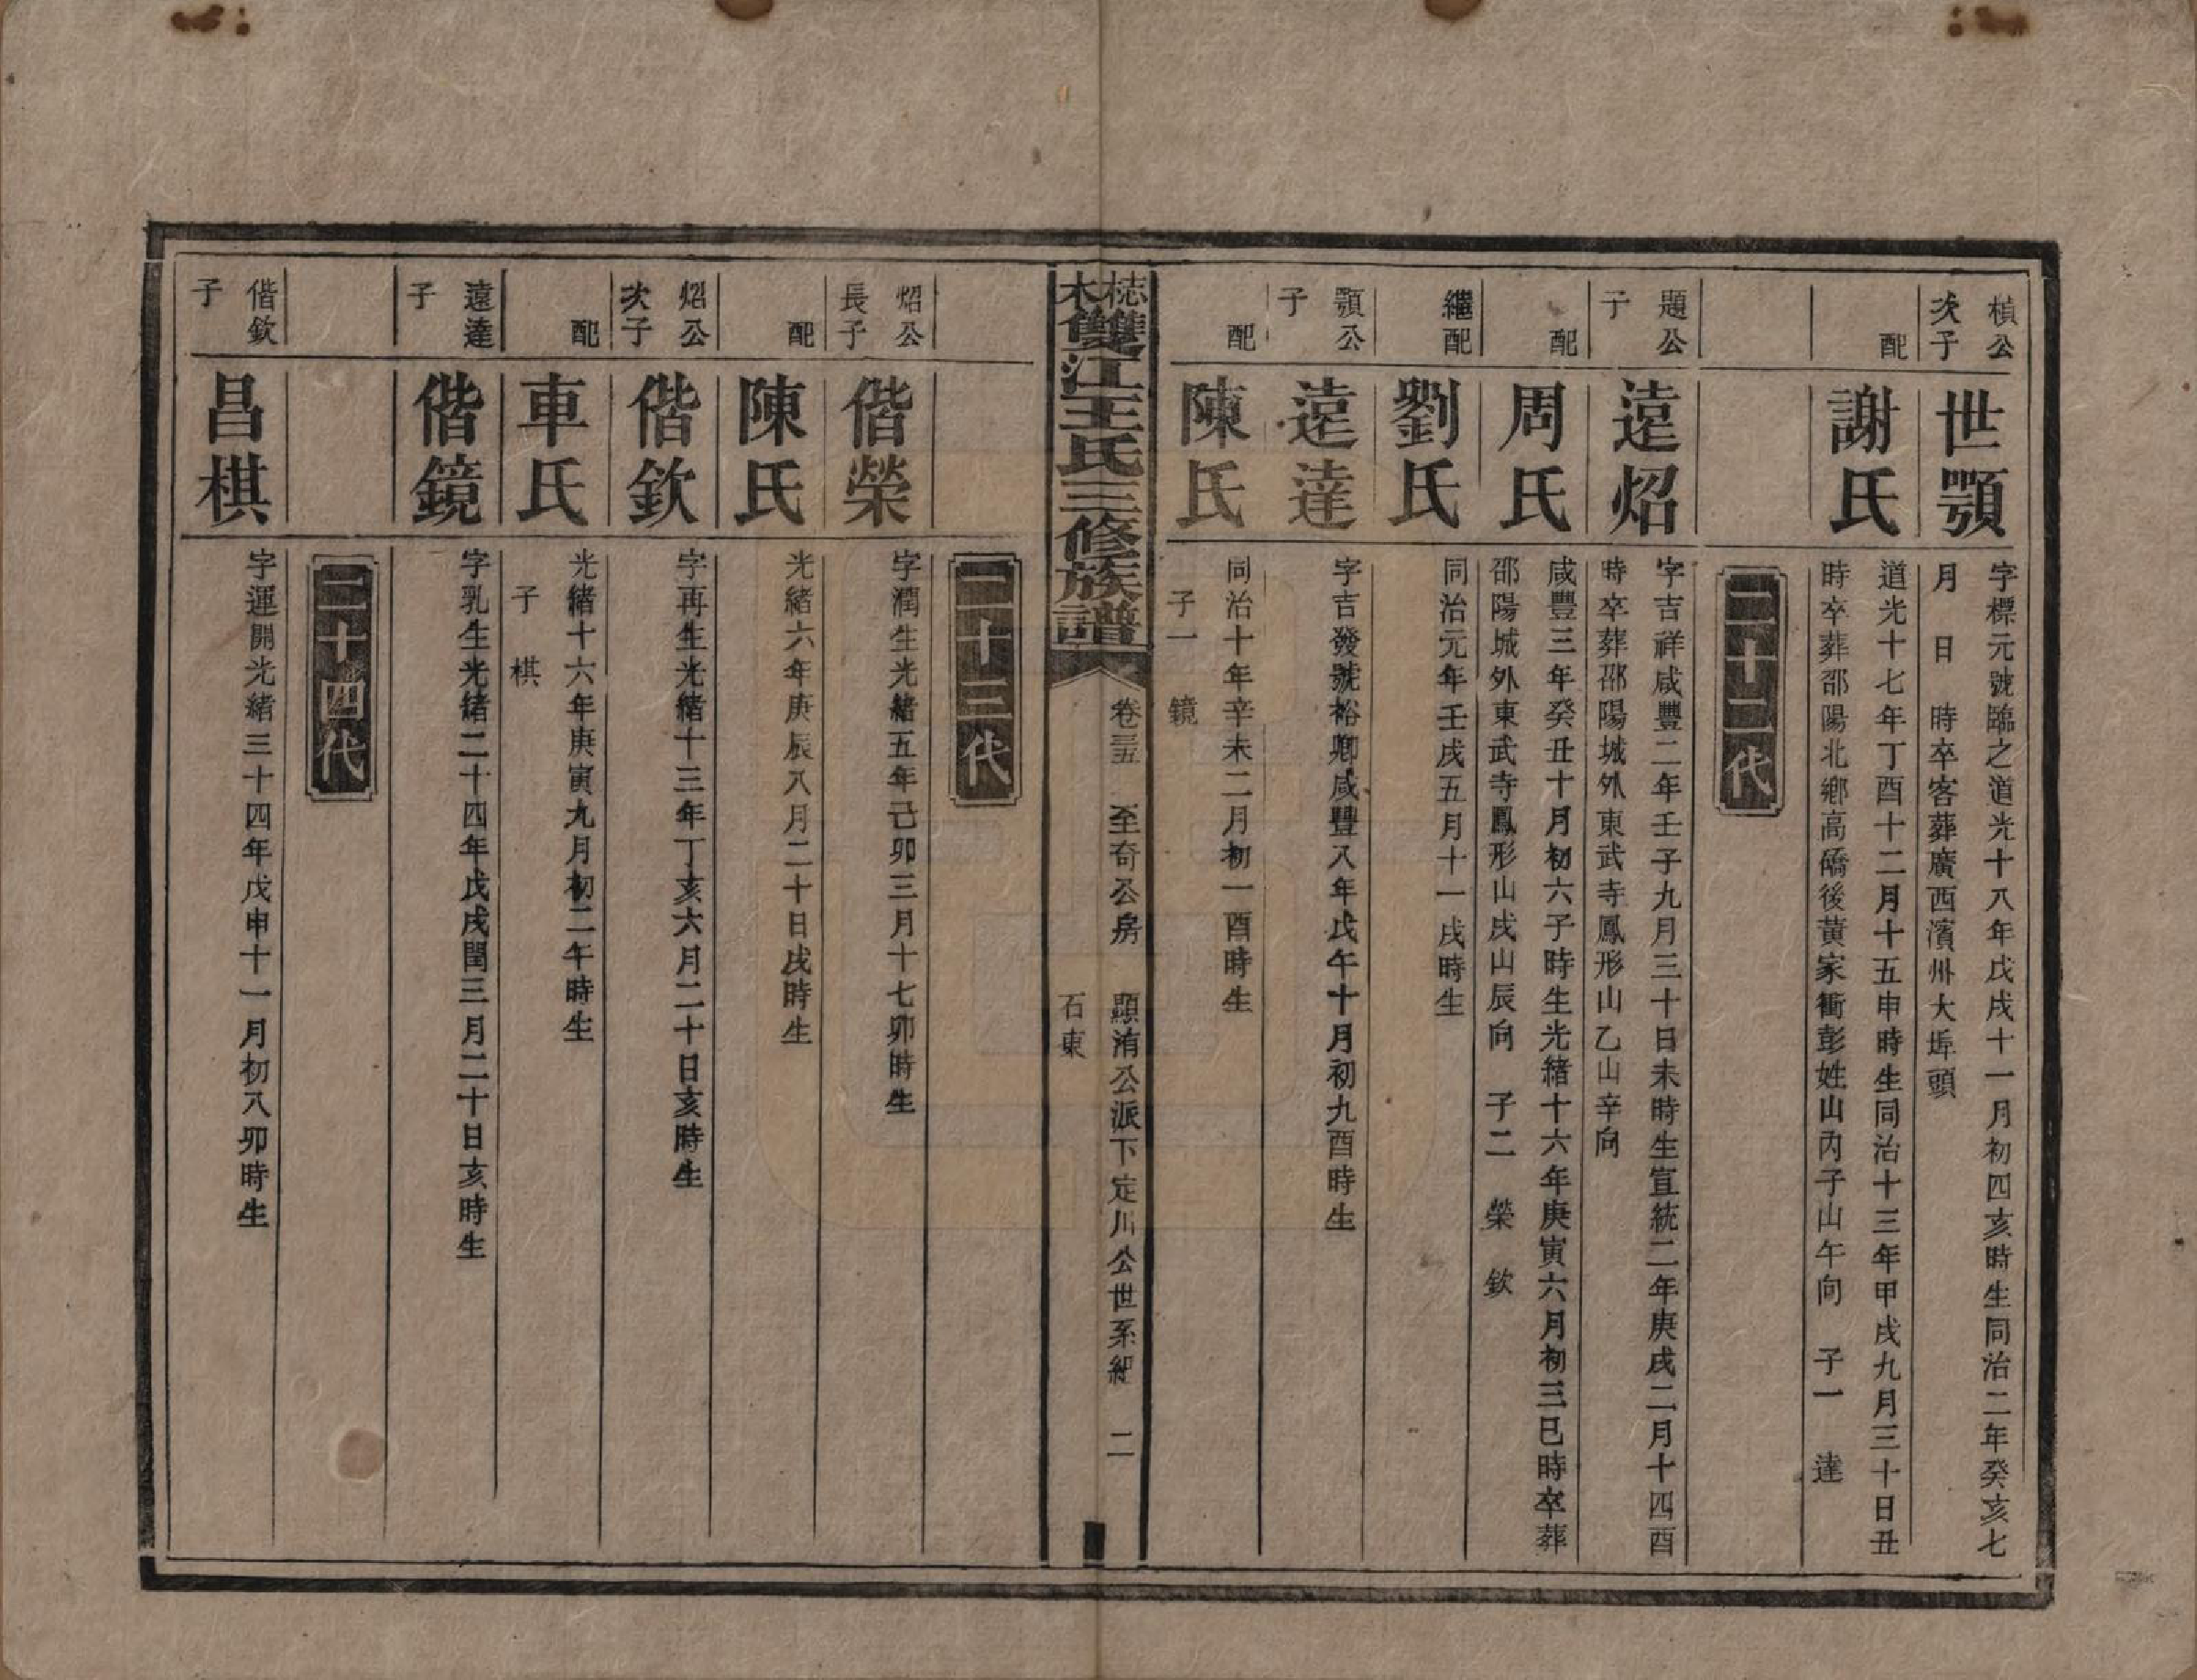 楨公
次子
世顎
字標元號臨之道光十八年戊戌十一月初四亥時生同治二年癸亥七
月　日　時卒客葬廣西濱州大埠頭
配
謝氏
道光十七年丁酉十二月十五申時生同治十三年甲戌九月三十日丑
時卒葬邵陽北鄉高礄後黃家衝彭姓山內子山午向　子一　達
二十二代
題公
子
遠炤
字吉祥咸豐二年壬子九月三十日未時生宣統二年庚戌二月十四酉
時卒葬邵陽城外東武寺鳳形山乙山辛向
配
周氏
咸豐三年癸丑十月初六子時生光緒十六年庚寅六月初三巳時卒葬
邵陽城外東武寺鳳形山戌山辰向　子二　榮　欽
繼配
劉氏
同治元年壬戌五月十一戌時生
顎公
子
遠達
字吉發號裕卿咸豐八年戊午十月初九酉時生
配
陳氏
同治十年辛未二月初一酉時生
子一　鏡
梽木雙江王氏三修族譜
卷三五　至奇公房　顯洧公派下定川公世系紀　二
石東
二十三代
炤公
長子
偕榮
字潤生光緒五年己卯三月十七卯時生
配
陳氏
光緒六年庚辰八月二十日戌時生
炤公
次子
偕欽
字再生光緒十三年丁亥六月二十日亥時生
配
車氏
光緒十六年庚寅九月初二午時生
子　棋
遠達
子
偕鏡
字乳生光緒二十四年戊戌閏三月二十日亥時生
二十四代
偕欽
子
昌棋
字運開光緒三十四年戊申十一月初八卯時生